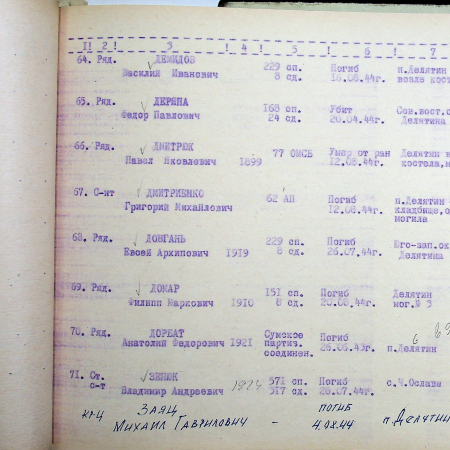 1! 2! 3 ! 4 ! 5 ! 6 ! 7
64. Ряд. ДЕМИДОВ 229 сп. Погиб п.Делятин
Василий Иванович 8 сд. 16.08.44г. возле кост
65. Ряд. ДЕРЯНА 168 сп. Убит Сев.вост.о
Федор Павлович 24 сд. 20.04.44г. Делятина
66. Ряд. ДМИТРЮК 77 ОМСБ Умер от ран Делятин
Павел Яковлевич 1899 12.08.44г. костела,м
67. С-нт ДМИТРИЕНКО 62 АП Погиб п.Делятин
Григорий Михайлович 12.08.44г. кладбище,о
могила
68. Ряд. ДОВГАНЬ 229 сп. Погиб Юго-зап.ок
Евсей Архипович 1919 8 сд. 26.07.44г. Делятина
69. Ряд. ДОМАР 151 сп. Погиб Делятин
Филипп Маркович 1910 8 сд. 20.08.44г. мог.№ 3
70. Ряд. ДОРБАТ Сумское Погиб
Анатолий Федорович 1921 партиз. 26.06.43г. п.Делятин
соединен.
71. Ст. ЗЕНЮК 1924 571 сп. Погиб с.Ч.Ослава
с-т Владимир Андреевич 317 сд. 28.07.44г.
кр-ц ЗАЯЦ ПОГИБ
МИХАИЛ ГАВРИЛОВИЧ - 4.09.44 п.ДЕЛЯТИН